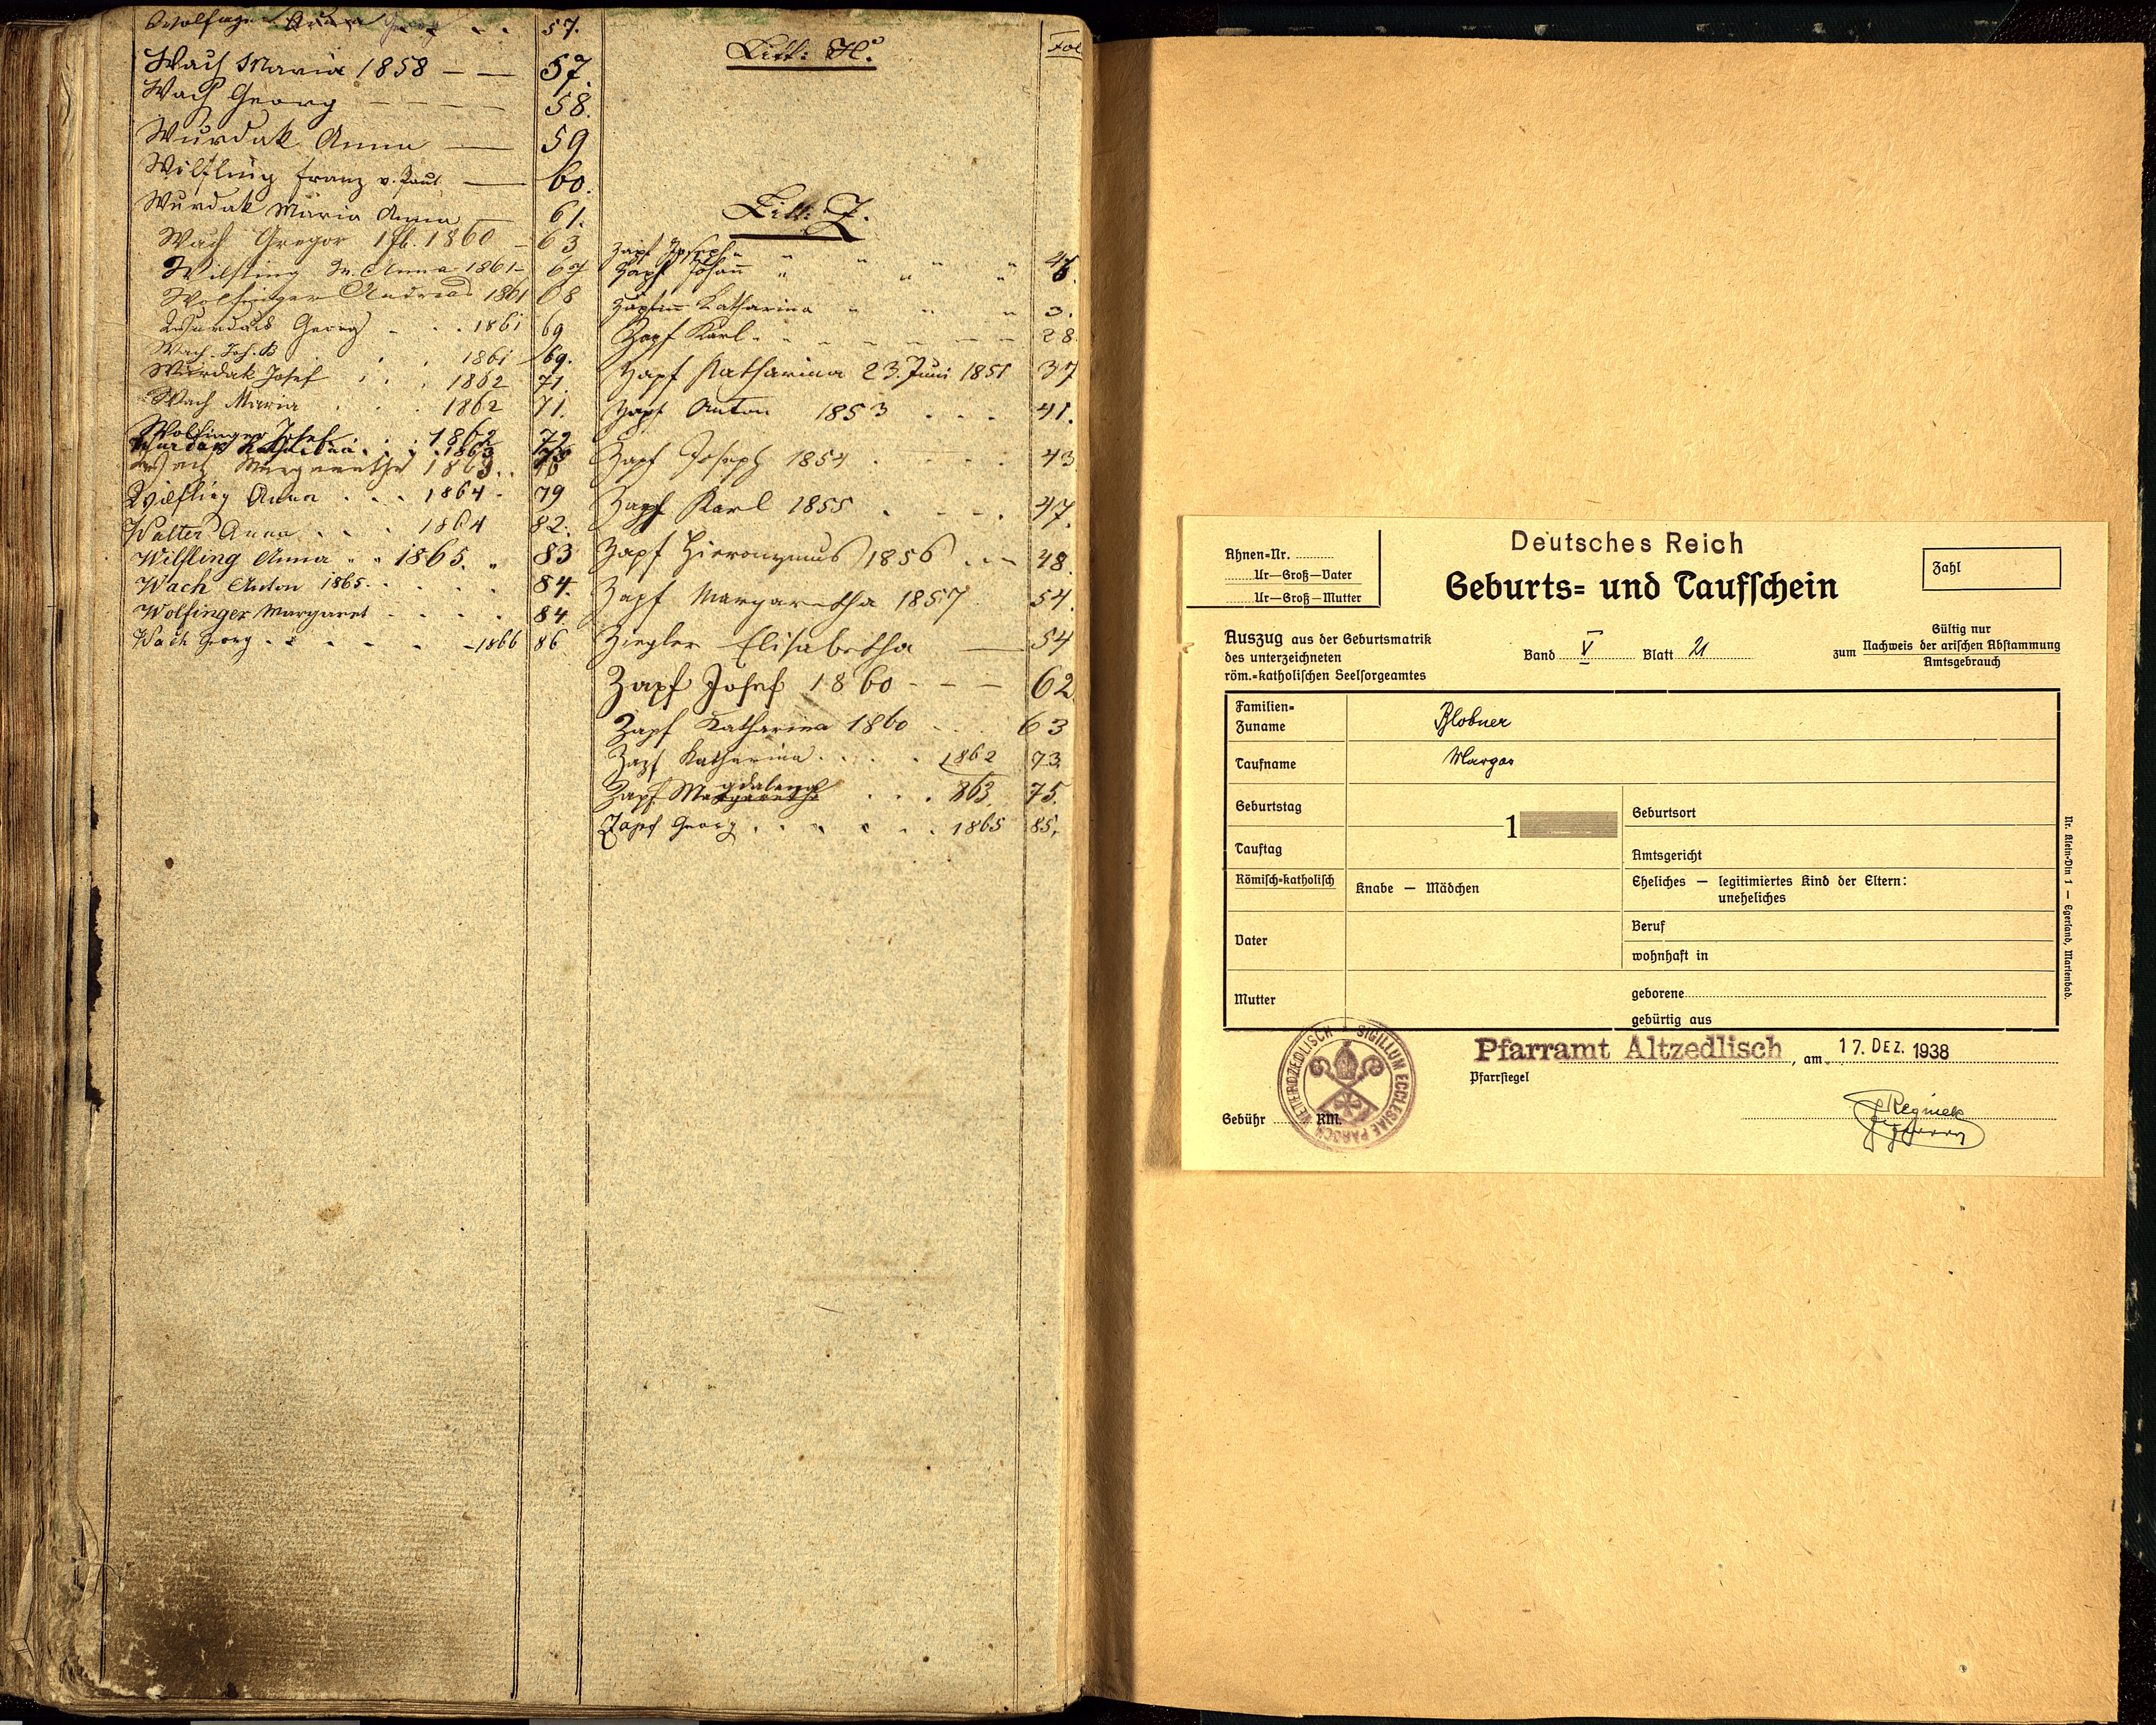 Wolfinger Georg 57.
Wach Maria 1858 — — 57.
Wach Georg — — — — 58.
Wurdak Anna — 59
Wilfling Franz v. Paul — 60.
Wurdak Maria Anna — 61.
Wach Gregor 1860 — 63
Wilfling M. Anna 1861 — 67
Wolfinger Andreas 1861 68
Wurdak Georg . . 1861 69
Wach Joh. B . . 1861 69.
Wurdak Josef . . 1862 71.
Wach Maria . . . 1862 71.
Wolfinger Josef . . . 1862 72
Wurdak Katharina . . . 1863
Wach Margaretha 1863 . .
Wilfling Anna . . . 1864 . 79
Walter Anna . . . 1864 82.
Wilfling Anna . . 1865. „ 83
Wach Anton 1865 . . . . 84.
Wolfinger Margaret . . . . 84.
Wach Georg . . . . . 1866 86
Fol
Litt:
Litt: Z.
Zapf Joseph
Zapf Johann
Zapfin Katharina „ „ „ 3.
Zapf Karl . . . . . . . 28
Zapf Katharina 23. Juni 1851 37
Zapf Anton 1853 . . . 41.
Zapf Joseph 1854 . . . . 43
Zapf Karl 1855 . . . . 47.
Zapf Hieronymus 1856 . . . 48.
Zapf Margaretha 1857 54.
Ziegler Elisabetha — 54
Zapf Josef 1860 - - — 62
Zapf Katharina 1860 . . . 63
Zapf Katharina . . . . 1862 73.
Zapf Magdalena . . . 863. 75.
Zapf Georg . . . . . . 1865 85.
Deutsches Reich
Geburts= und Taufschein
Ahnen=Nr. ..........
........Ur—Groß—Vater
........Ur—Groß—Mutter
Zahl
Auszug aus der Geburtsmatrik
des unterzeichneten
röm.=katholischen Seelsorgeamtes
Band V Blatt 21
Gültig nur
zum Nachweis der arischen Abstammung
Amtsgebrauch
Familien=
Zuname Blobner
Taufname Margar
Geburtstag
1
Geburtsort
Tauftag
Amtsgericht
Römisch=katholisch
Knabe — Mädchen
Eheliches — legitimiertes Kind der Eltern:
uneheliches
Vater
Beruf
wohnhaft in
Mutter
geborene
gebürtig aus
Nr. Klein-Din 1 — Egerland, Marienbad.
Pfarramt Altzedlisch, am 17. DEZ. 1938
Pfarrsiegel
SIGILLUM ECCLESIAE PAROCH. VETEROZEDLISCH
Gebühr RM.